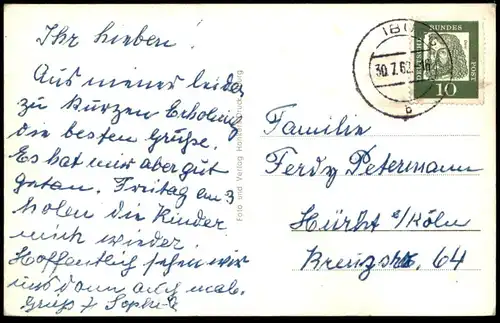 Ihr Lieben!
Aus meiner leider
zu kurzen Erholung
die besten Grüße.
Es hat mir aber gut
getan. Freitag am 3
holen die Kinder
mich wieder.
Hoffentlich sehen wir
uns dann auch mal.
Gruß
Foto und Verlag
30.7.62
BUNDES
POST
10
Familie
Ferdy Petermann
Hürth b/Köln
Kreuzstr. 64